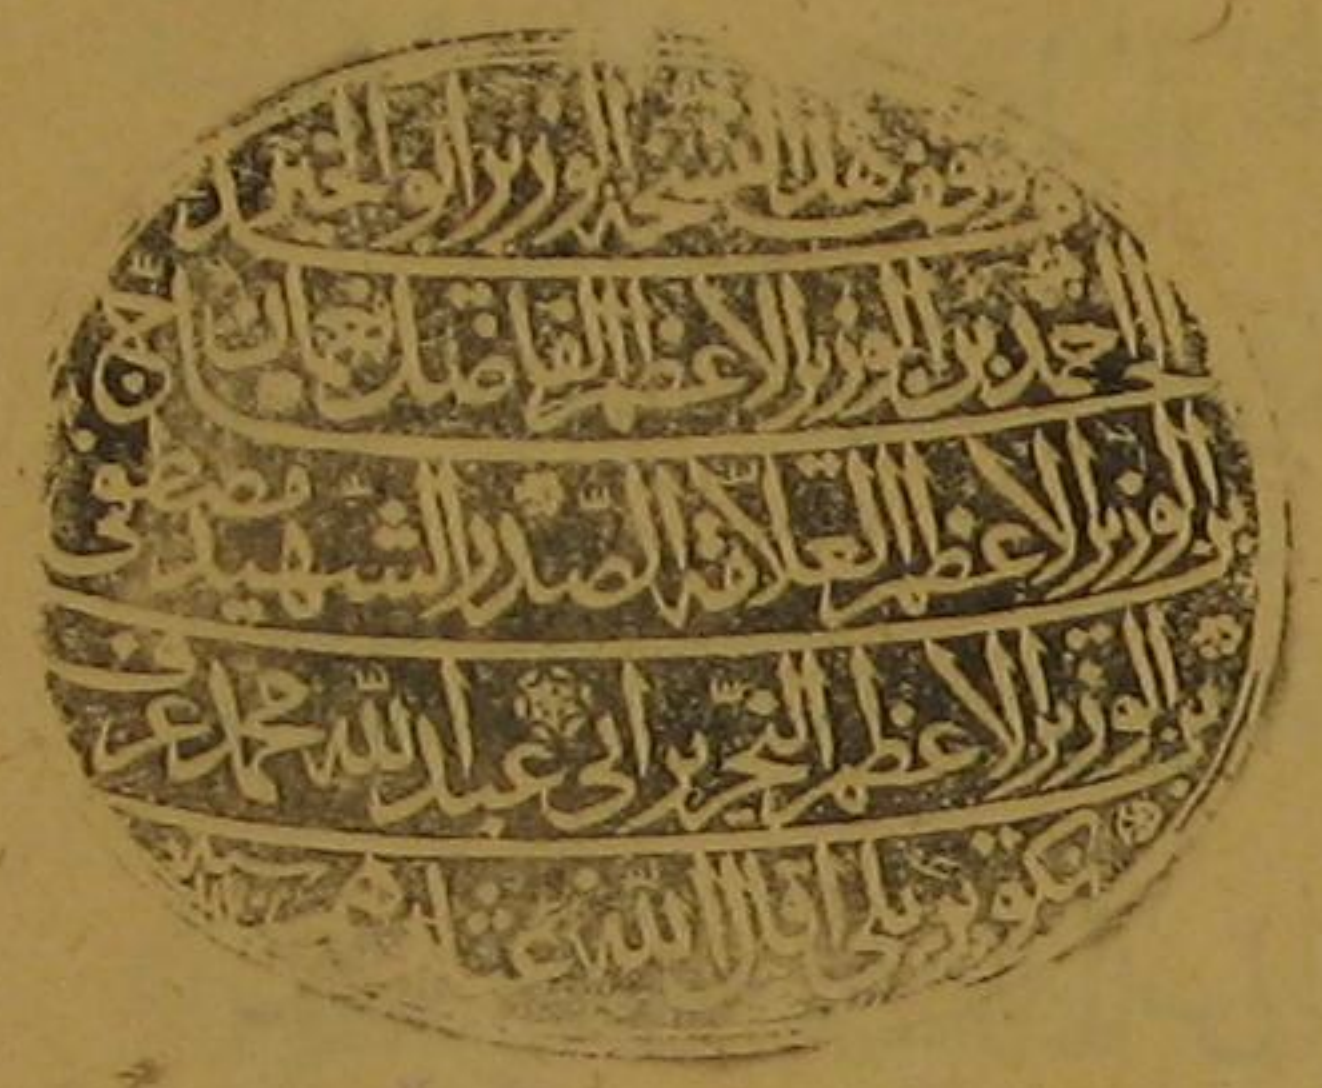 وقف هذه النسخة الوزير ابو الخير
الحاج احمد بن الوزير الاعظم الفاضل نعمان
بن الوزير الاعظم العلامة الصدر الشهيد مصطفى
بن الوزير الاعظم النحرير ابى عبد الله محمد عرف
بكوپريلى اقال الله عثارهم